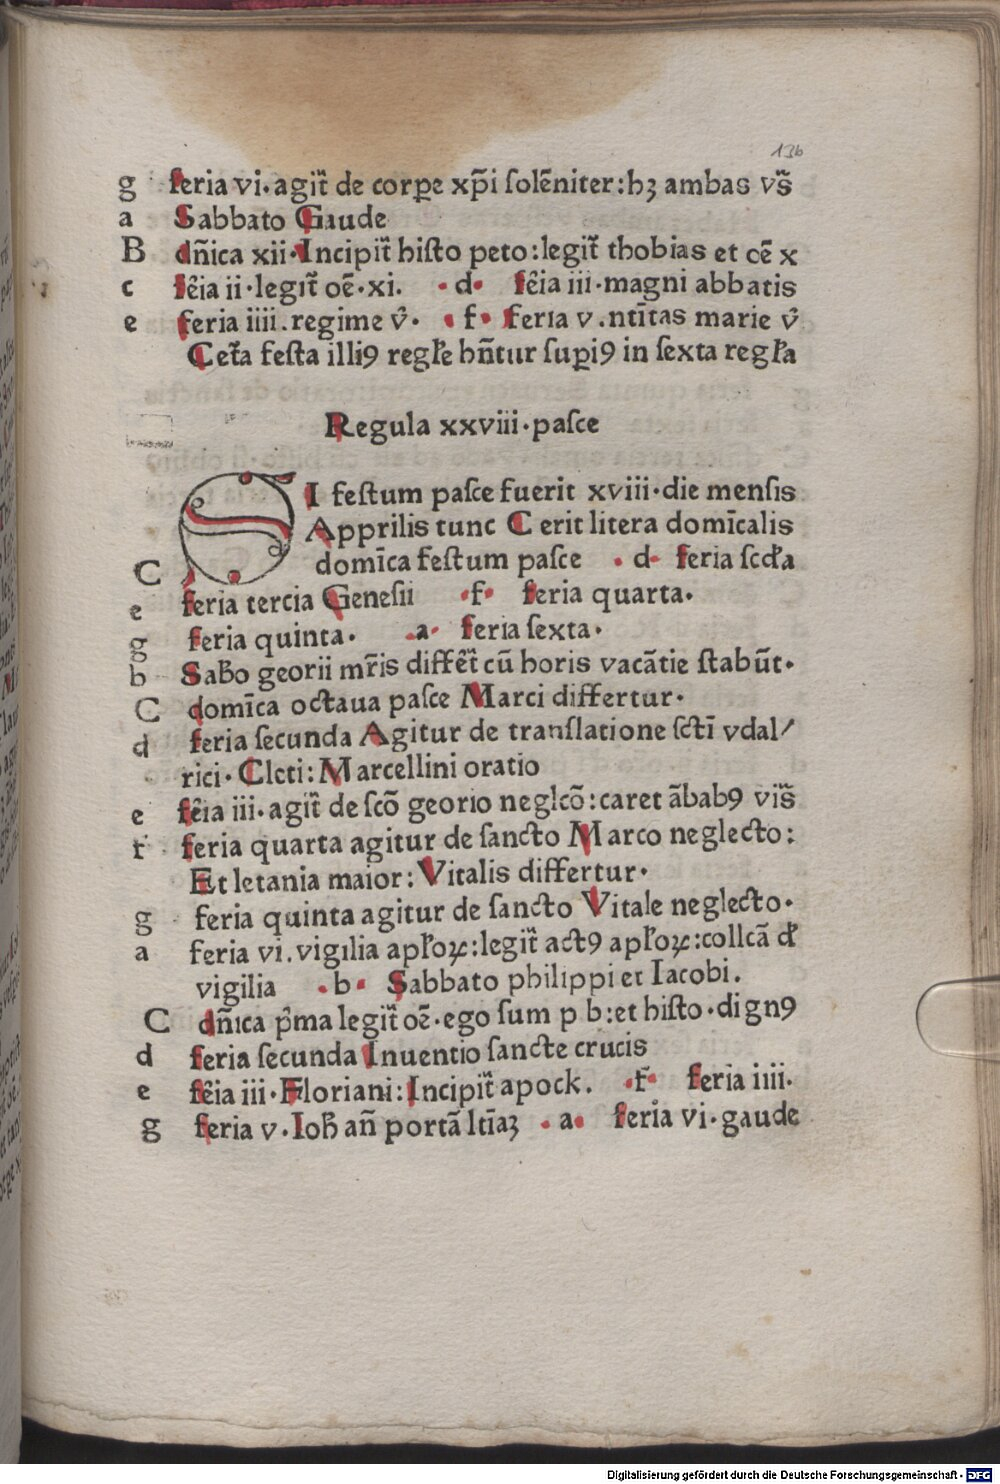 136
g feria vi·agit᷑ de corꝑe xp̄i solēniter:hꝫ ambas vs̄
a Sabbato Gaude
B dn̄ica xii·Incipit᷑ histo peto:legit᷑ thobias et oē x
c fēia ii·legit᷑ oē·xi. ·d· fēia iii·magni abbatis
e feria iiii.regime v̄· ·f· feria v.ntīтas marie v̄
Cet᷑a festa illiꝯ regl̄e hn̄tur suꝑiꝯ in sexta regl̄a
Regula xxviii·pasce
SI festum pasce fuerit xviii·die mensis
Apprilis tunc C erit litera domīcalis
C domīca festum pasce ·d· feria scd̄a
e feria tercia Genesii ·f· feria quarta·
g feria quinta· ·a· feria sexta·
b Sabo georii mr̄is differ̄t cū horis vacātie stabūt·
C domīca octaua pasce Marci differtur·
d feria secunda Agitur de translatione sctī vdal/
rici·Cleti:Marcellini oratio
e fēia iii·agit᷑ de scō georio neglcō:caret ābabꝯ vis̄
f feria quarta agitur de sancto Marco neglecto:
Et letania maior:Vitalis differtur·
g feria quinta agitur de sancto Vitale neglecto·
a feria vi.vigilia apl̄oꝝ:legit᷑ actꝯ apl̄oꝝ:collcā d̄
vigilia ·b· Sabbato philippi et Iacobi.
C dn̄ica p̄ma legit᷑ oē·ego sum p b:et histo·dignꝯ
d feria secunda Inuentio sancte crucis
e fēia iii·Floriani:Incipit᷑ apock. ·f· feria iiii·
g feria v·Ioh̄ an̄ portā ltīaꝫ ·a· feria vi·gaude
Digitalisierung gefördert durch die Deutsche Forschungsgemeinschaft - DFG